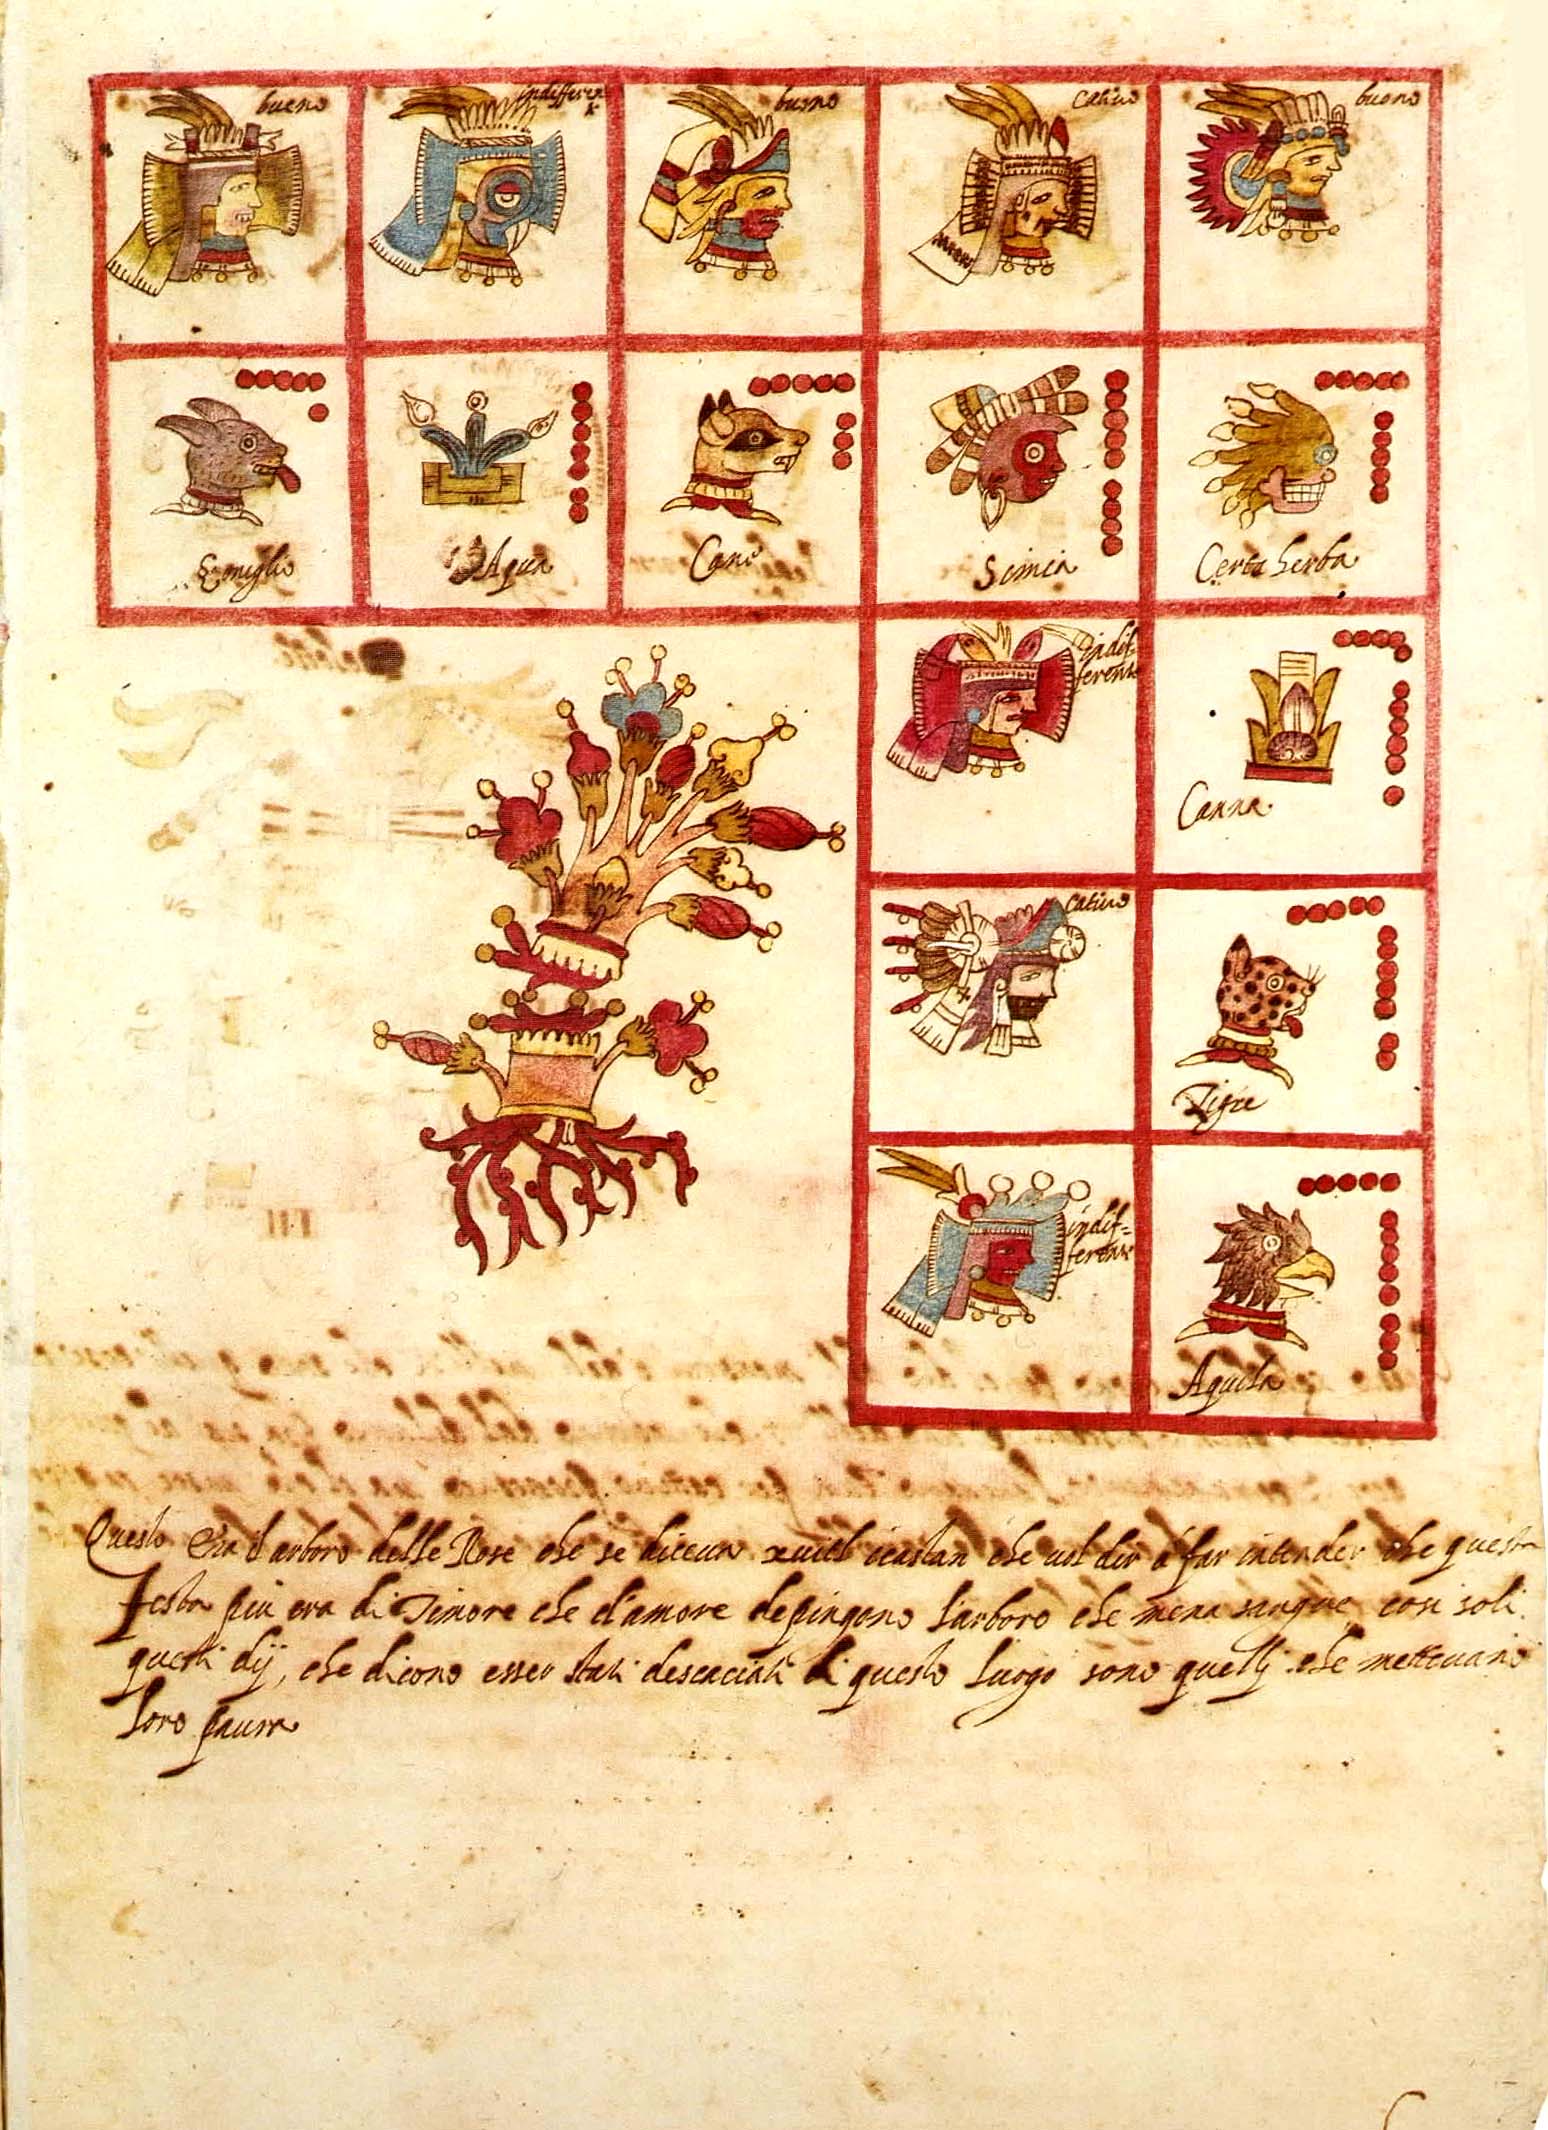 bueno
indifferen
buono
catiuo
buono
Coniglio
Aqua
Cane
Simia
Certa herba
indif=
ferente
Canna
catiuo
Tigre
indif=
ferente
Aquila
Questo era l'arboro delle Rose che se diceua xuitl icastan che uol dir á far intender che questa
festa piu era di Timore che d'amore depingono l'arboro che mena sangue, cosi soli
questi dij, che dicono esser stati descaciati di questo luogo sono quellj che metteuano
loro paura